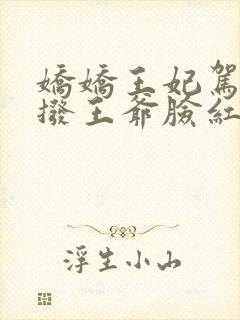 嬌嬌王妃駕
撥王爺臉紅
浮生小山